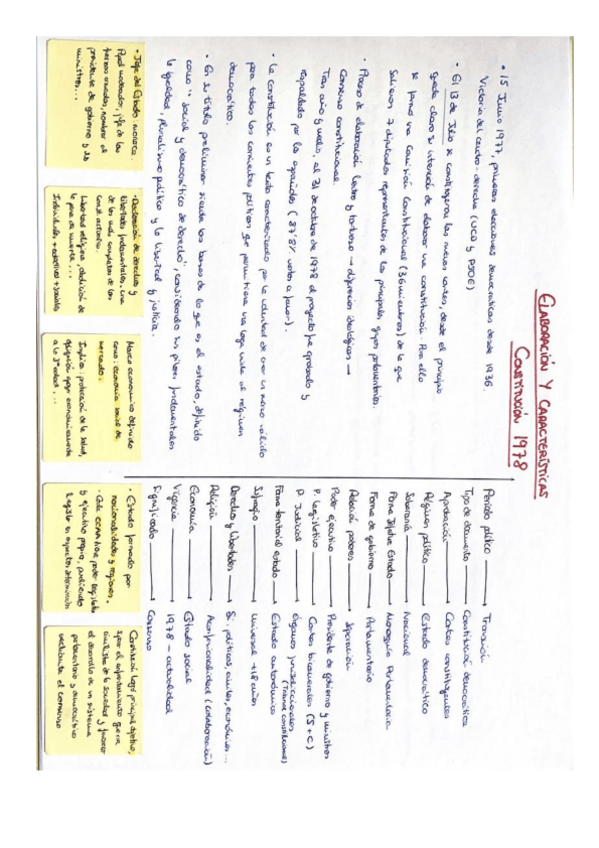 ELABORACIÓN Y CARACTERÍSTICAS
CONSTITUCIÓN 1978
• 15 Junio 1977, primeras elecciones democráticas desde 1936.
Victoria del centro-derecha (UCD y PSOE)
• El 13 de Julio se constituyeron las nuevas cortes, desde el principio
queda claro su intención de elaborar una constitución. Para ello
se forma una Comisión Constitucional (36 miembros) de la que
salieron 7 diputados representantes de los principales grupos parlamentarios.
• Proceso de elaboración lento y tortuoso → disensiones ideológicas →
Consenso constitucional.
Tras año y medio, al 31 de octubre de 1978 el proyecto fue aprobado y
respaldado por los españoles (87'8% votos a favor).
• La constitución es un texto caracterizado por la voluntad de crear un marco válido
para todas las corrientes políticas que permitiera una larga vida al régimen
democrático.
• En su título preliminar sienta las bases de lo que es el estado, definido
como "social y democrático de derecho", considerando sus pilares fundamentales
la igualdad, pluralismo político y la libertad y justicia.
Periodo político → Transición
Tipo de documento → Constitución democrática
Aprobación → Cortes constituyentes
Régimen político → Estado democrático
Soberanía → Nacional
Forma Jefatura Estado → Monarquía Parlamentaria
Forma de gobierno → Parlamentario
Relación poderes → Separación
Poder ejecutivo → Presidente de gobierno y ministros
P. Legislativo → Cortes bicamerales (S + C)
P. Judicial → órganos jurisdiccionales
(Tribunal constitucional)
Forma territorial estado → Estado autonómico
Sufragio → Universal +18 años
Derechos y libertades → Sí, políticos, civiles, económicos...
Religión → Aconfesionalidad (colaboración)
Economía → Estado social
Vigencia → 1978 - actualidad
Significado → Consenso
• Jefe del Estado: monarca.
Papel moderador, jefe de las
fuerzas armadas, nombrar al
presidente de gobierno y los
ministros...
• Declaración de derechos y
libertades fundamentales, una
de las más completas de las
const. actuales.
Libertad religiosa, abolición de
la pena de muerte...
Individuales + colectivos + sociales
Marco económico definido
como: economía social de
mercado.
Implica: protección de la salud,
a la 3ª edad...
• Estado formado por
nacionalidades y regiones.
• Cada CCAA tiene poder legislativo
y ejecutivo propio, pudiendo
legislar en aspectos determinados
Constitución logró principal objetivo,
similitudes de la sociedad y favorecer
el desarrollo de un sistema
parlamentario y democrático
mediante el consenso